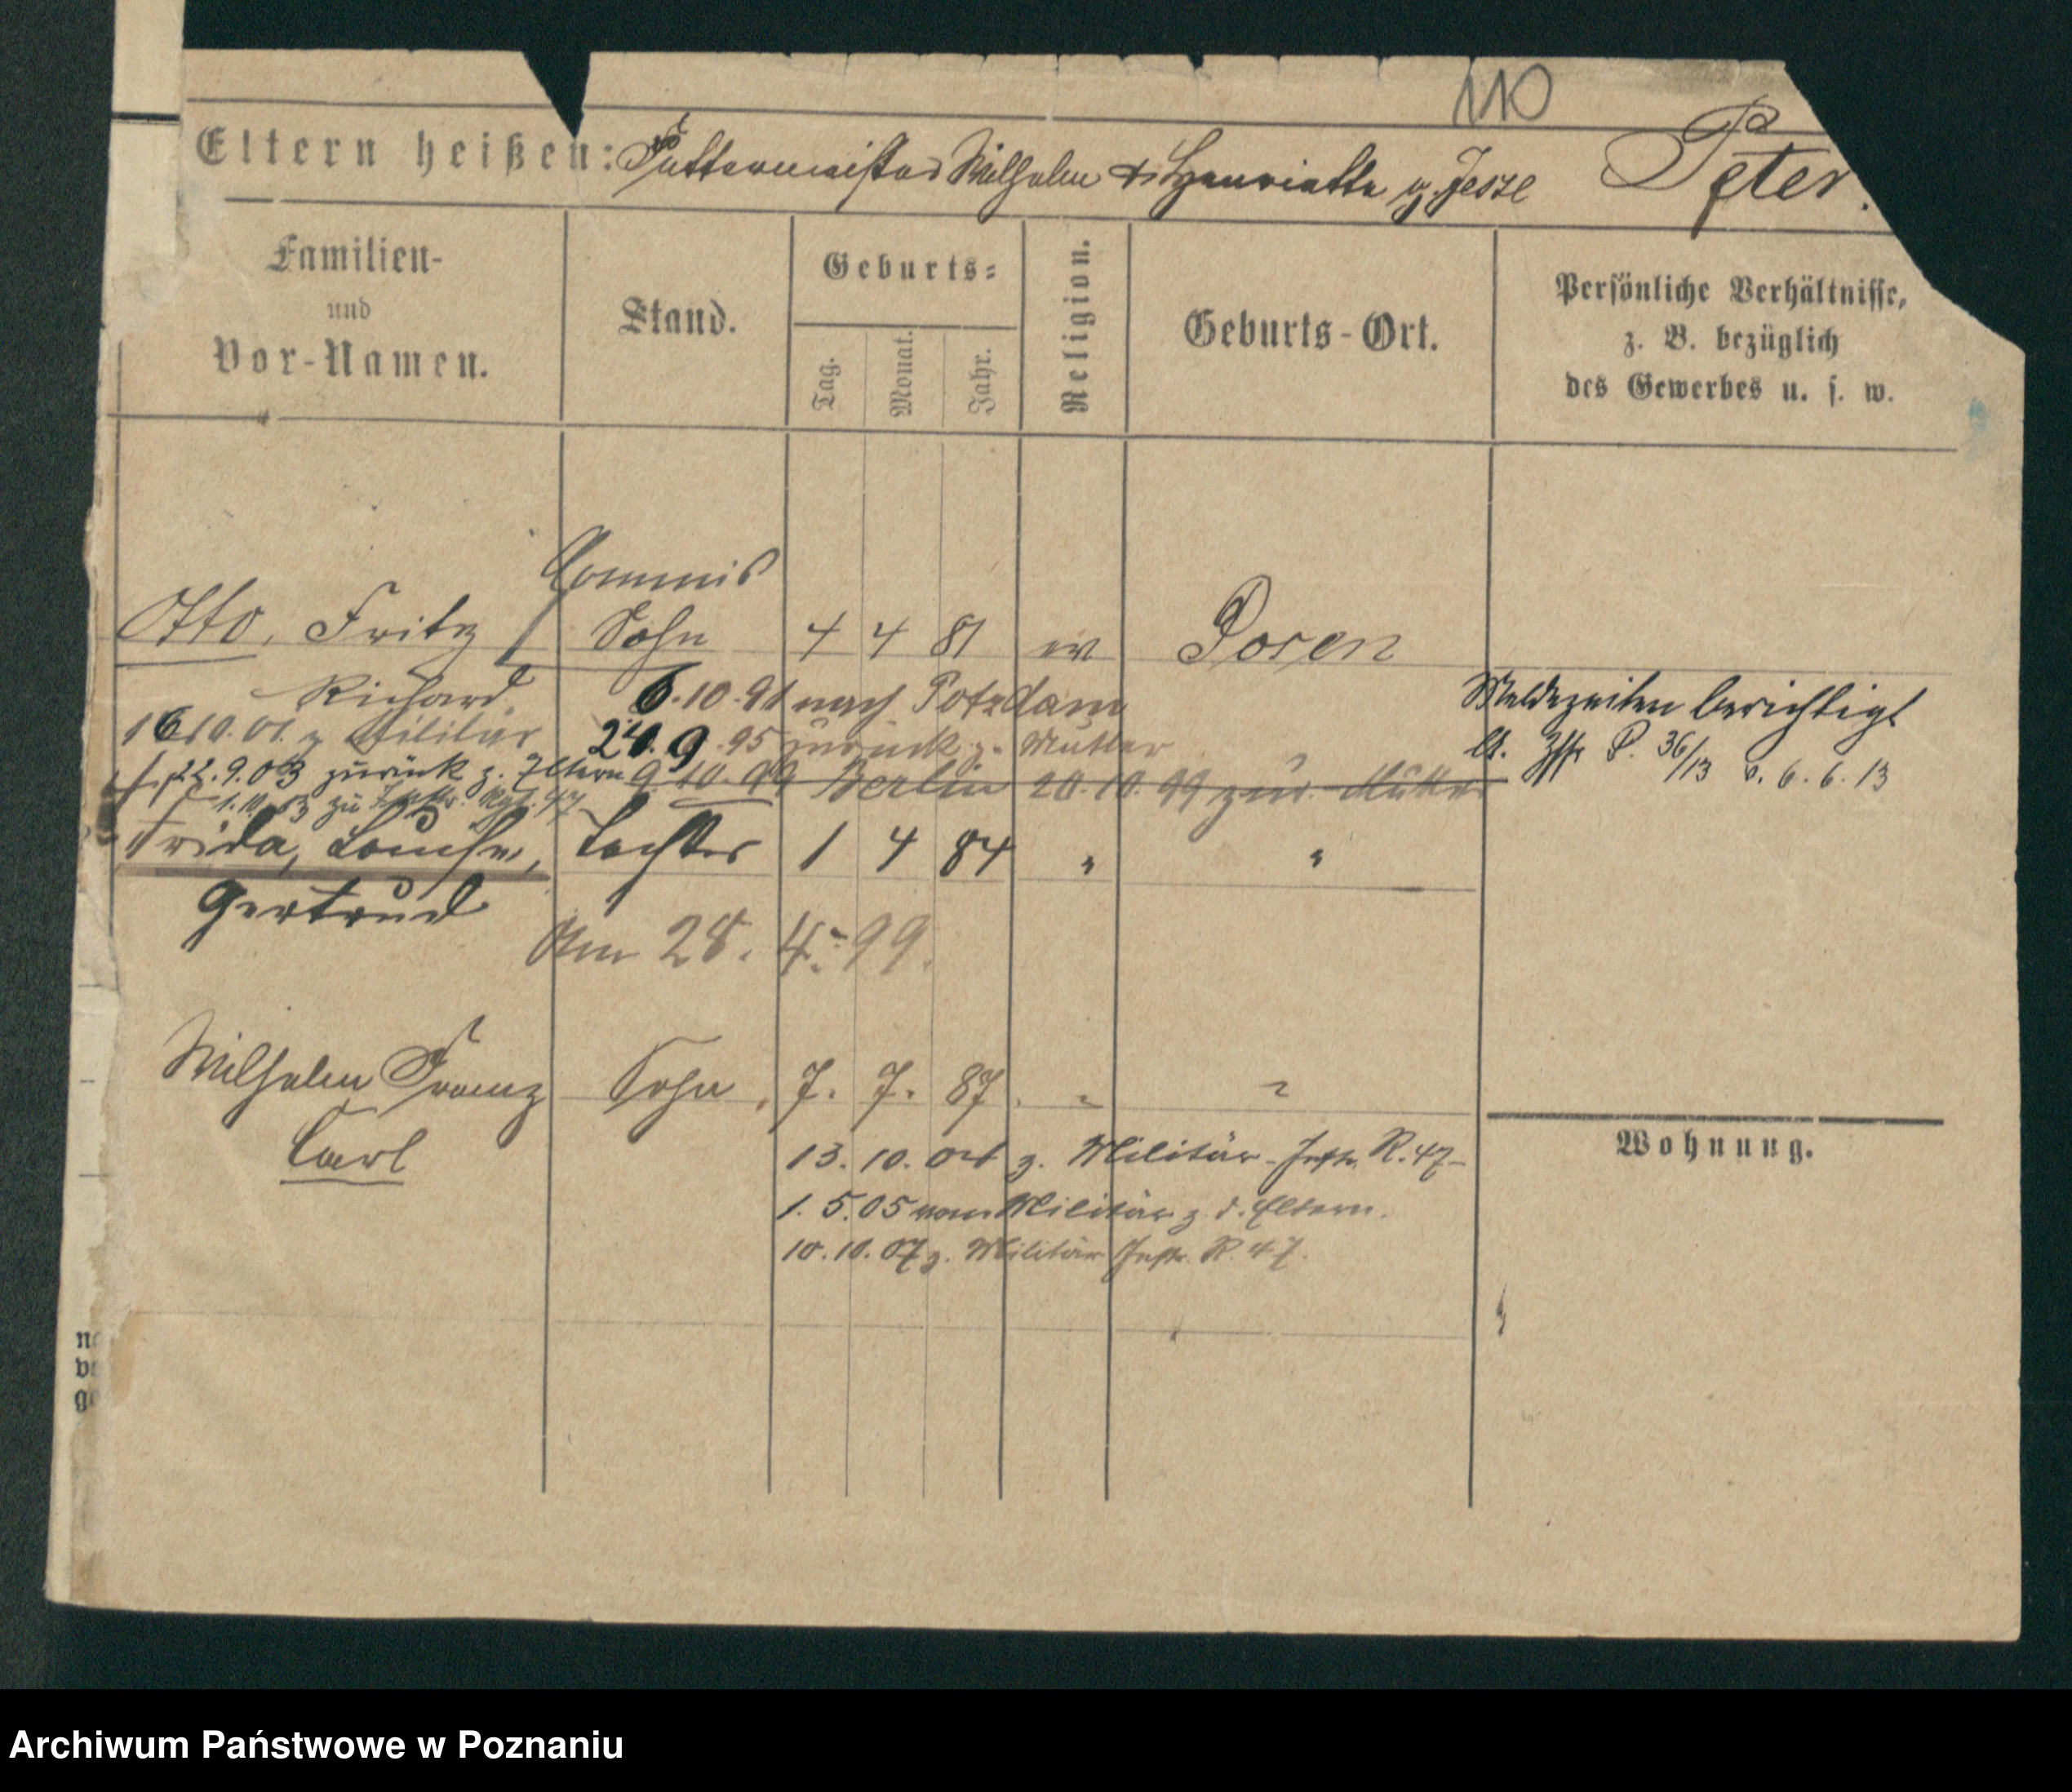 110
Eltern heißen: Futtermeister Wilhelm & Henriette g. Jesse Peter.
Familien-
und
Vor-Namen.
Stand.
Geburts-
Tag.
Monat.
Jahr.
Religion.
Geburts-Ort.
Persönliche Verhältnisse,
z. B. bezüglich
des Gewerbes u. s. w.
Commis
Otto, Fritz Sohn 4 4 81 ev Posen
Richard 6.10.91 nach Potzdam
16.10.01. z Militär 24.9.95 zurück z. Mutter
22.9.03 zurück z. Eltern 9.10.99 Berlin 20.10.99 zur Mutter
1.10.03 zu Inftr. Rgt. 47
Meldezeiten berichtigt
lt. P. 36/13 v. 6.6.13
Frida, Louise, Tochter 1 4 84 " "
Gertrud
Am 28. 4. 99.
Wilhelm Franz Sohn 7. 7. 87. " "
Carl
13. 10. 04 z. Militär-Inftr. R. 47-
1. 5. 05 vom Militär z. d. Eltern.
10. 10. 07 z. Militär Inftr. R. 47.
Wohnung.
Archiwum Państwowe w Poznaniu